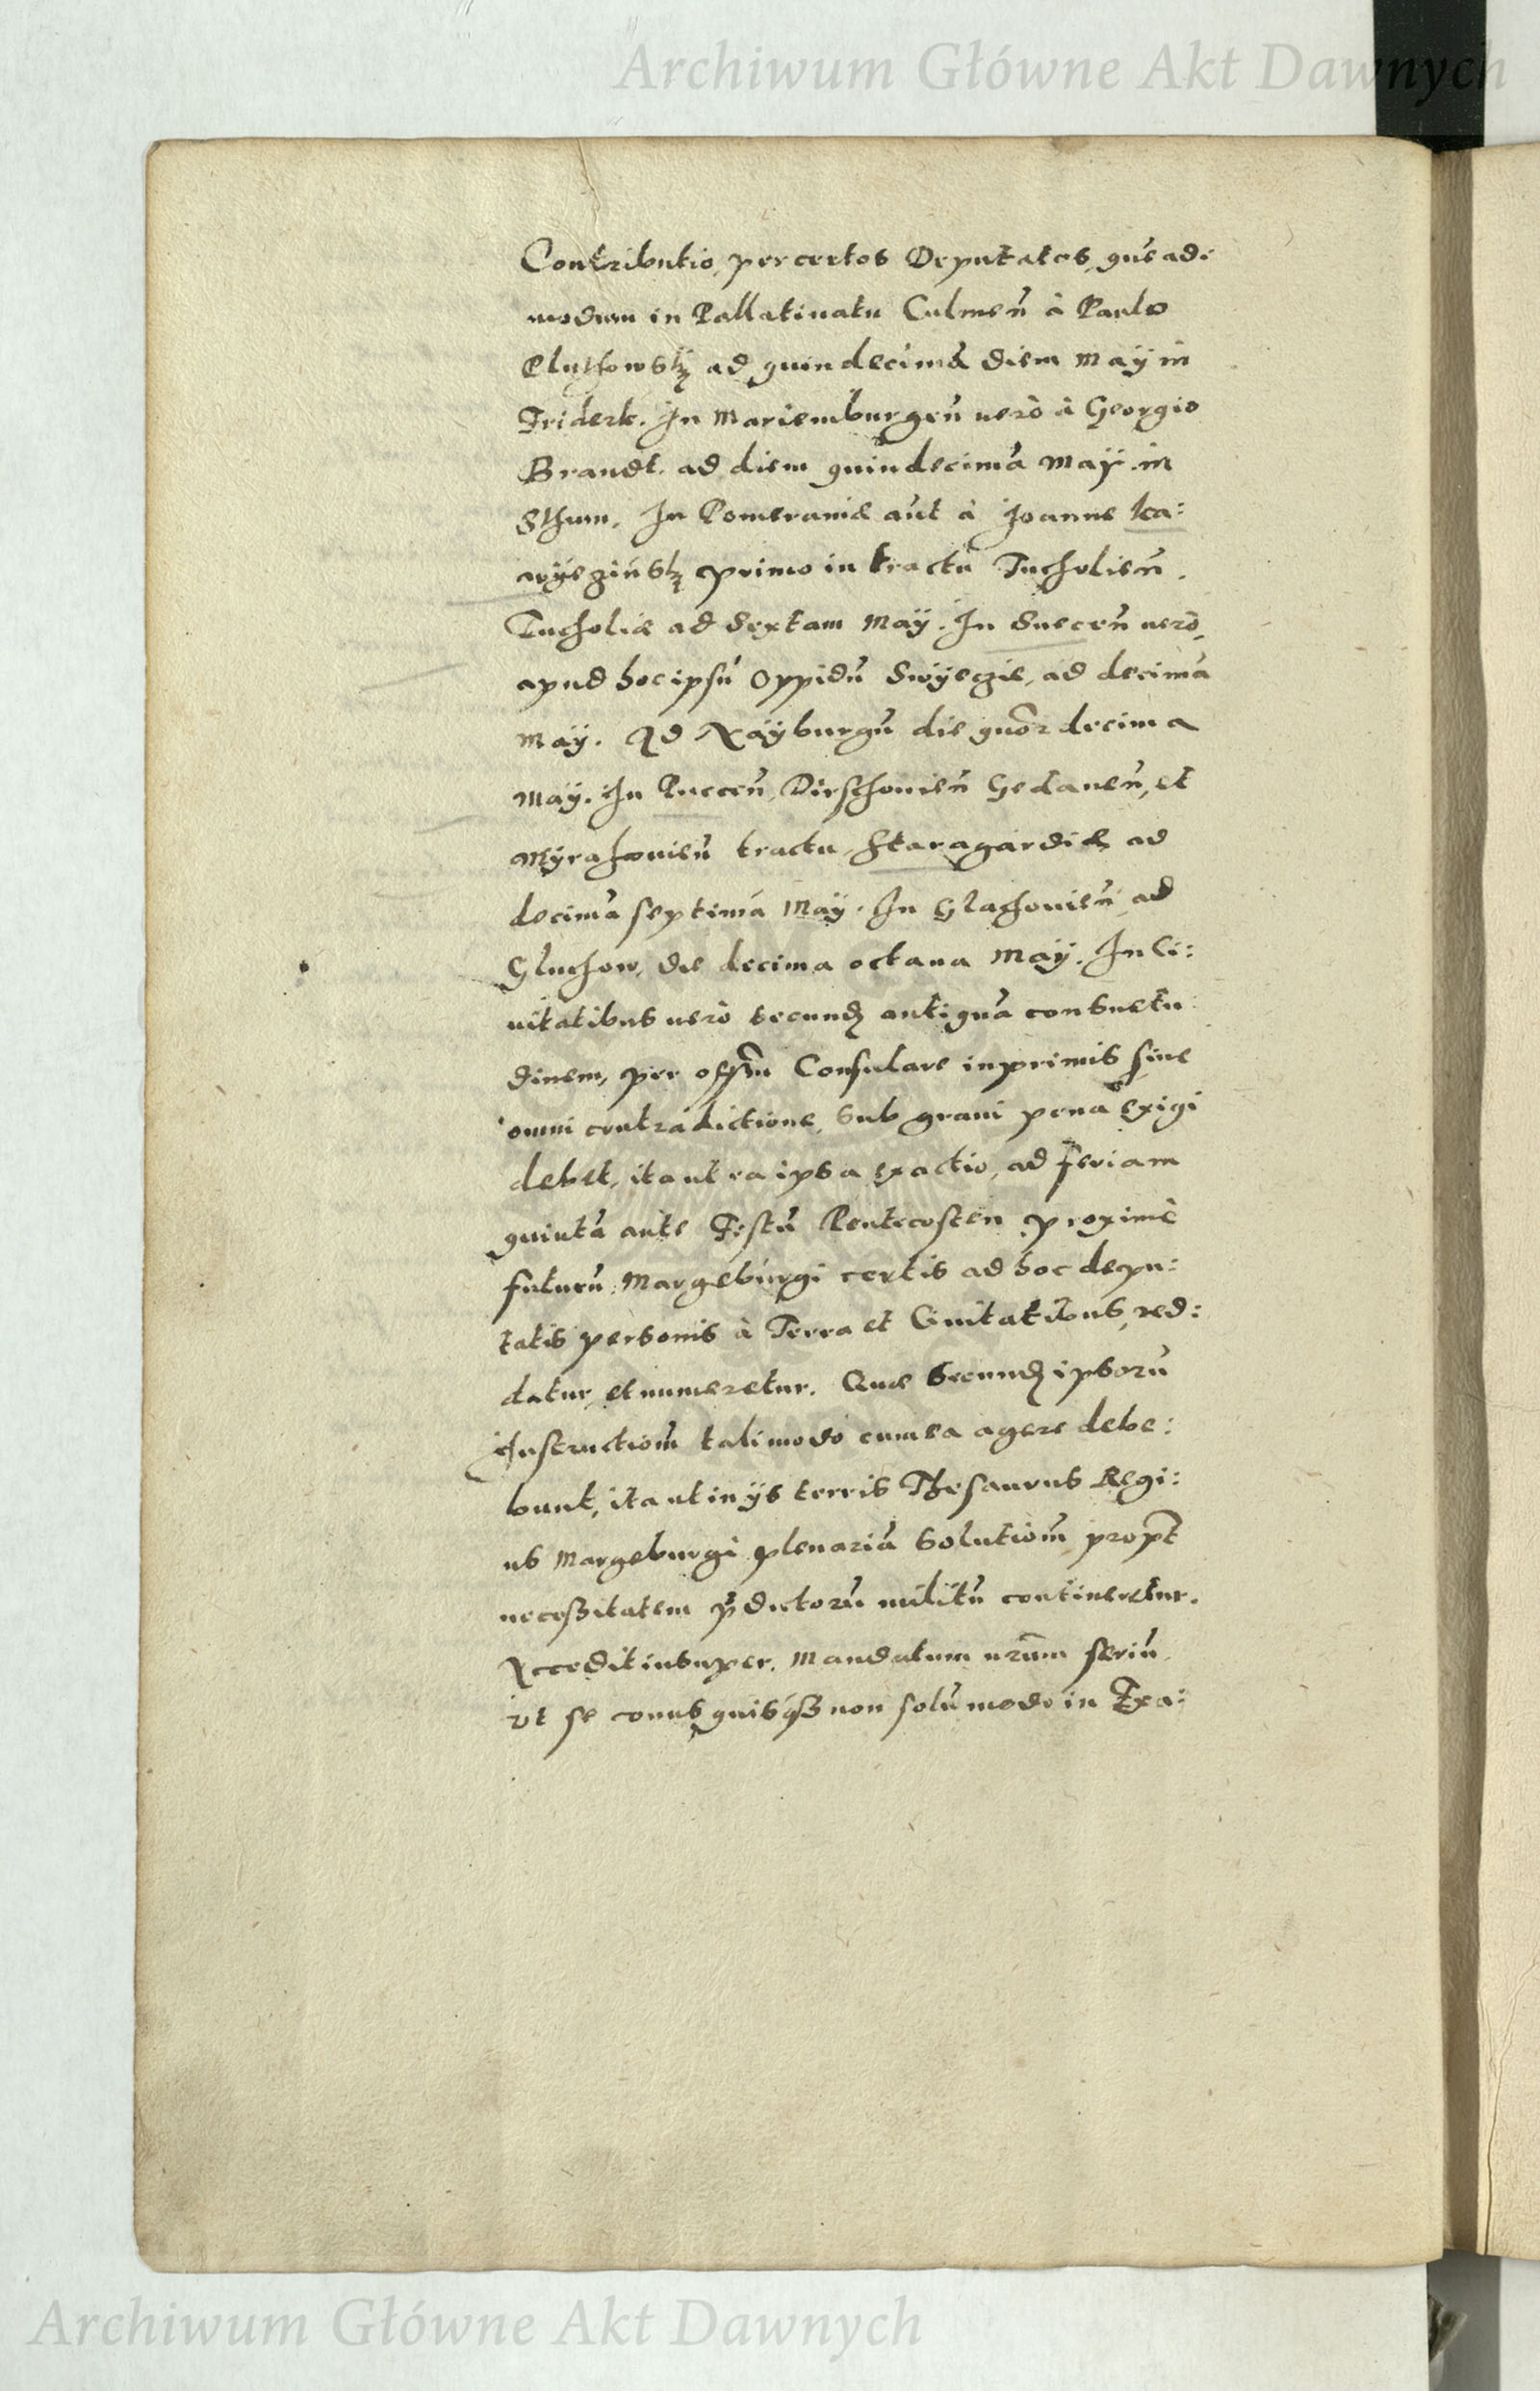 Archiwum Główne Akt Dawnych
Contributio, per certos Deputatos, que ad:
modum in Pallatinatu Culmen̄ à Paulo
Pluthowskÿ ad quindecimā diem Maÿ in
Friderk. In Mariemburgen̄ uerò à Georgio
Brandt. ad diem quindecimā Maÿ in
Sthum. In Pomerania aūt à Joanne Ka:
wÿezińskÿ primo in tractu Tucholien̄.
Tucholiæ ad Sextam Maÿ. In Suecen̄ uerò,
apud hoc ipsū Oppidū Swÿeczie, ad decimā
Maÿ. Ad Xaÿburgū die quor decima
Maÿ. In Puccen̄, Dirschouien̄ Gedanen̄, et
Myrahouien̄ tractu, Staragardiæ ad
decimā septimā Maÿ. In Slachouien̄ ad
Sluchow, die decima octaua Maÿ. In Ci:
uitatibus uerò secund antiquā consuetu
dinem, per offm̄ Consulare inprimis sine
omni contradictione, sub graui pena exigi
debet, ita ut ea ipsa exactio, ad feriam
quintā ante Festū Pentecosten proximè
futurū, Margeburgi certis ad hoc depu:
tatis personis à Terra et Ciuitatibus, red:
datur, et numeretur. Quæ secund ipsorū
Instructiom̄ tali modo cum ea agere debe:
bunt, ita ut in ÿs terris Thesaurus Regi:
us Margeburgi plenariā solutiom̄ propt
necessitatem p̄dictorū militū contineretur.
Accedit insuper. Mandatum nrūm seriū
vt se vnusquisqȝ non solū modo in Exa:
Archiwum Główne Akt Dawnych